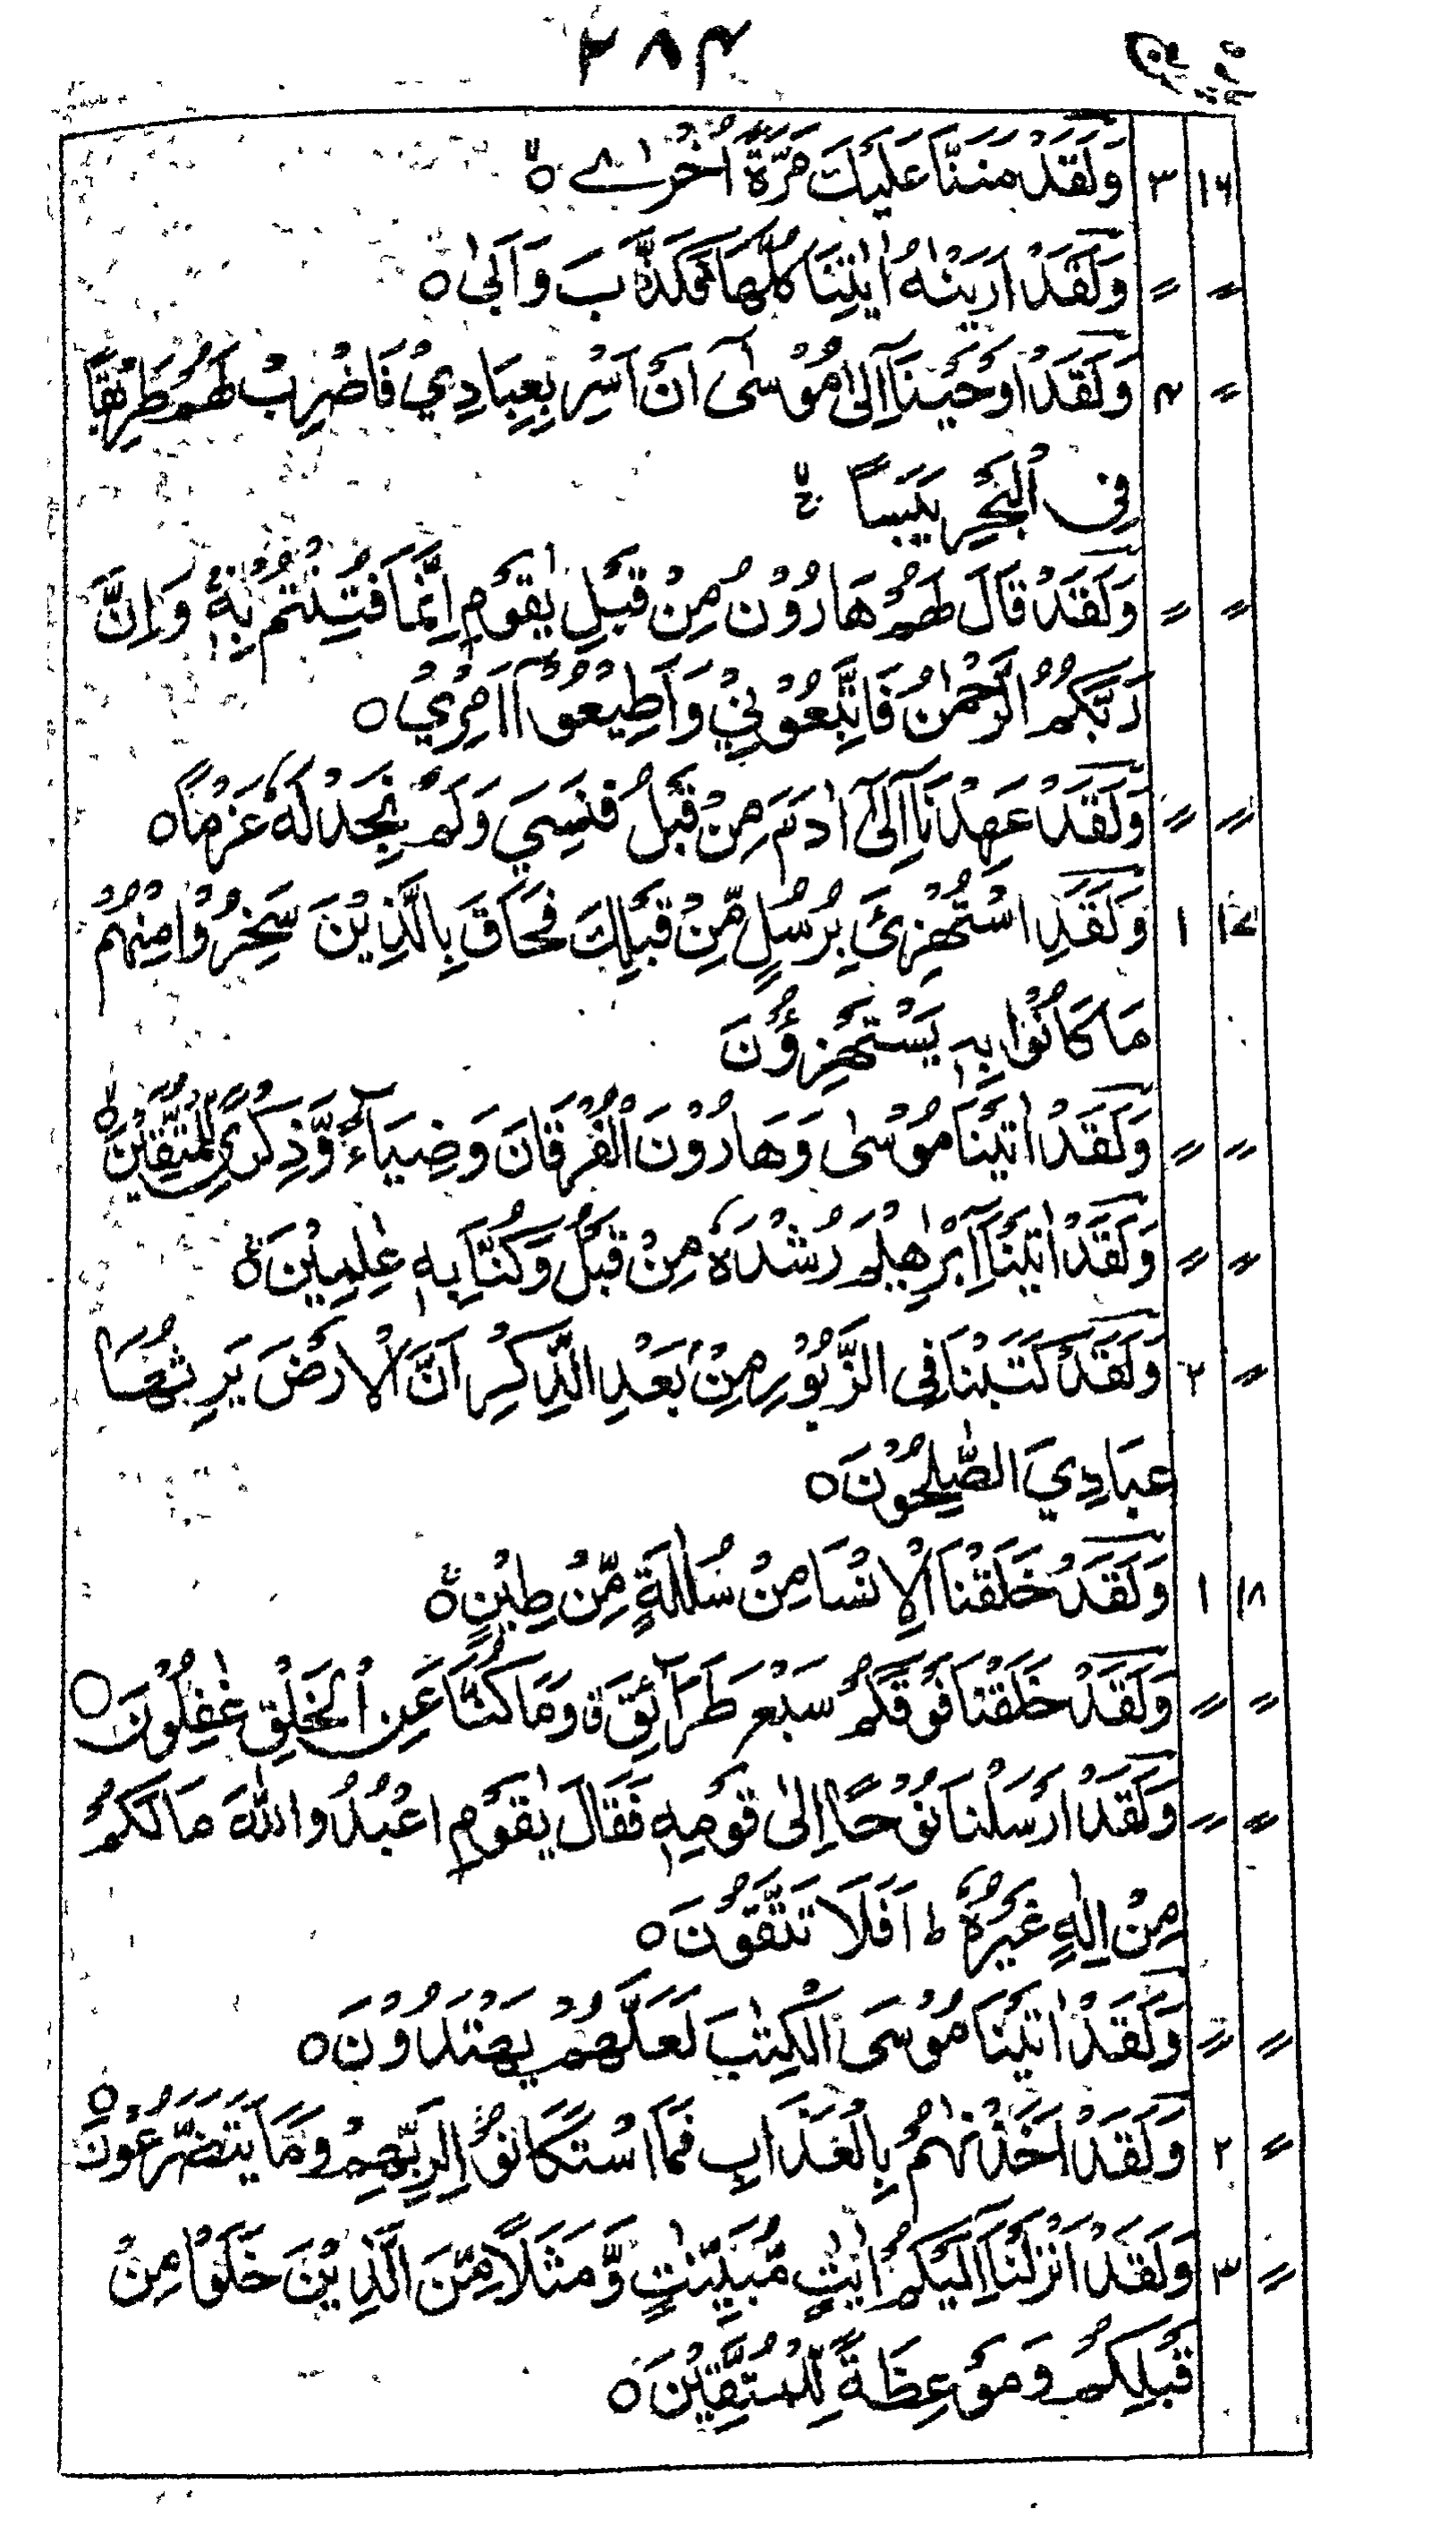 ۲۸۴
۱۶ ۳ وَلَقَدْ مَنَنَّا عَلَيْكَ مَرَّةً اُخْرٰىۙ○
〃 〃 وَلَقَدْ اَرَيْنٰهُ اٰيٰتِنَا كُلَّهَا فَكَذَّبَ وَاَبٰى○
〃 ۴ وَلَقَدْ اَوْحَيْنَآ اِلٰى مُوْسٰٓى اَنْ اَسْرِ بِعِبَادِيْ فَاضْرِبْ لَهُمْ طَرِيْقًا
فِى الْبَحْرِ يَبَسًا ۙ
〃 〃 وَلَقَدْ قَالَ لَهُمْ هَارُوْنُ مِنْ قَبْلُ يٰقَوْمِ اِنَّمَا فُتِنْتُمْ بِهٖ ۚ وَاِنَّ
رَبَّكُمُ الرَّحْمٰنُ فَاتَّبِعُوْنِيْ وَاَطِيْعُوْٓا اَمْرِيْ○
〃 〃 وَلَقَدْ عَهِدْنَآ اِلٰٓى اٰدَمَ مِنْ قَبْلُ فَنَسِيَ وَلَمْ نَجِدْ لَهٗ عَزْمًا○
۱۷ ۱ وَلَقَدِ اسْتُهْزِئَ بِرُسُلٍ مِّنْ قَبْلِكَ فَحَاقَ بِالَّذِيْنَ سَخِرُوْا مِنْهُمْ
مَا كَانُوْا بِهٖ يَسْتَهْزِؤُنَ
〃 〃 وَلَقَدْ اٰتَيْنَا مُوْسٰى وَهَارُوْنَ الْفُرْقَانَ وَضِيَآءً وَّذِكْرًى لِّلْمُتَّقِيْنَۙ○
〃 〃 وَلَقَدْ اٰتَيْنَآ اِبْرٰهِيْمَ رُشْدَهٗ مِنْ قَبْلُ وَكُنَّا بِهٖ عٰلِمِيْنَۚ○
〃 ۲ وَلَقَدْ كَتَبْنَا فِى الزَّبُوْرِ مِنْۢ بَعْدِ الذِّكْرِ اَنَّ الْاَرْضَ يَرِثُهَا
عِبَادِيَ الصّٰلِحُوْنَ○
۱۸ ۱ وَلَقَدْ خَلَقْنَا الْاِنْسَا مِنْ سُلٰلَةٍ مِّنْ طِيْنٍۚ○
〃 〃 وَلَقَدْ خَلَقْنَا فَوْقَكُمْ سَبْعَ طَرَآئِقَ ۖ وَمَا كُنَّا عَنِ الْخَلْقِ غٰفِلُوْنَ○
〃 〃 وَلَقَدْ اَرْسَلْنَا نُوْحًا اِلٰى قَوْمِهٖ فَقَالَ يٰقَوْمِ اعْبُدُوا اللّٰهَ مَا لَكُمْ
مِنْ اِلٰهٍ غَيْرُهٗ ط اَفَلَا تَتَّقُوْنَ○
〃 〃 وَلَقَدْ اٰتَيْنَا مُوْسَى الْكِتٰبَ لَعَلَّهُمْ يَهْتَدُوْنَ○
〃 ۲ وَلَقَدْ اَخَذْنٰهُمْ بِالْعَذَابِ فَمَا اسْتَكَانُوْا لِرَبِّهِمْ وَمَا يَتَضَرَّعُوْنَ○
〃 ۳ وَلَقَدْ اَنْزَلْنَآ اِلَيْكُمْ اٰيٰتٍ مُّبَيِّنٰتٍ وَّمَثَلًا مِّنَ الَّذِيْنَ خَلَوْا مِنْ
قَبْلِكُمْ وَمَوْعِظَةً لِّلْمُتَّقِيْنَ○